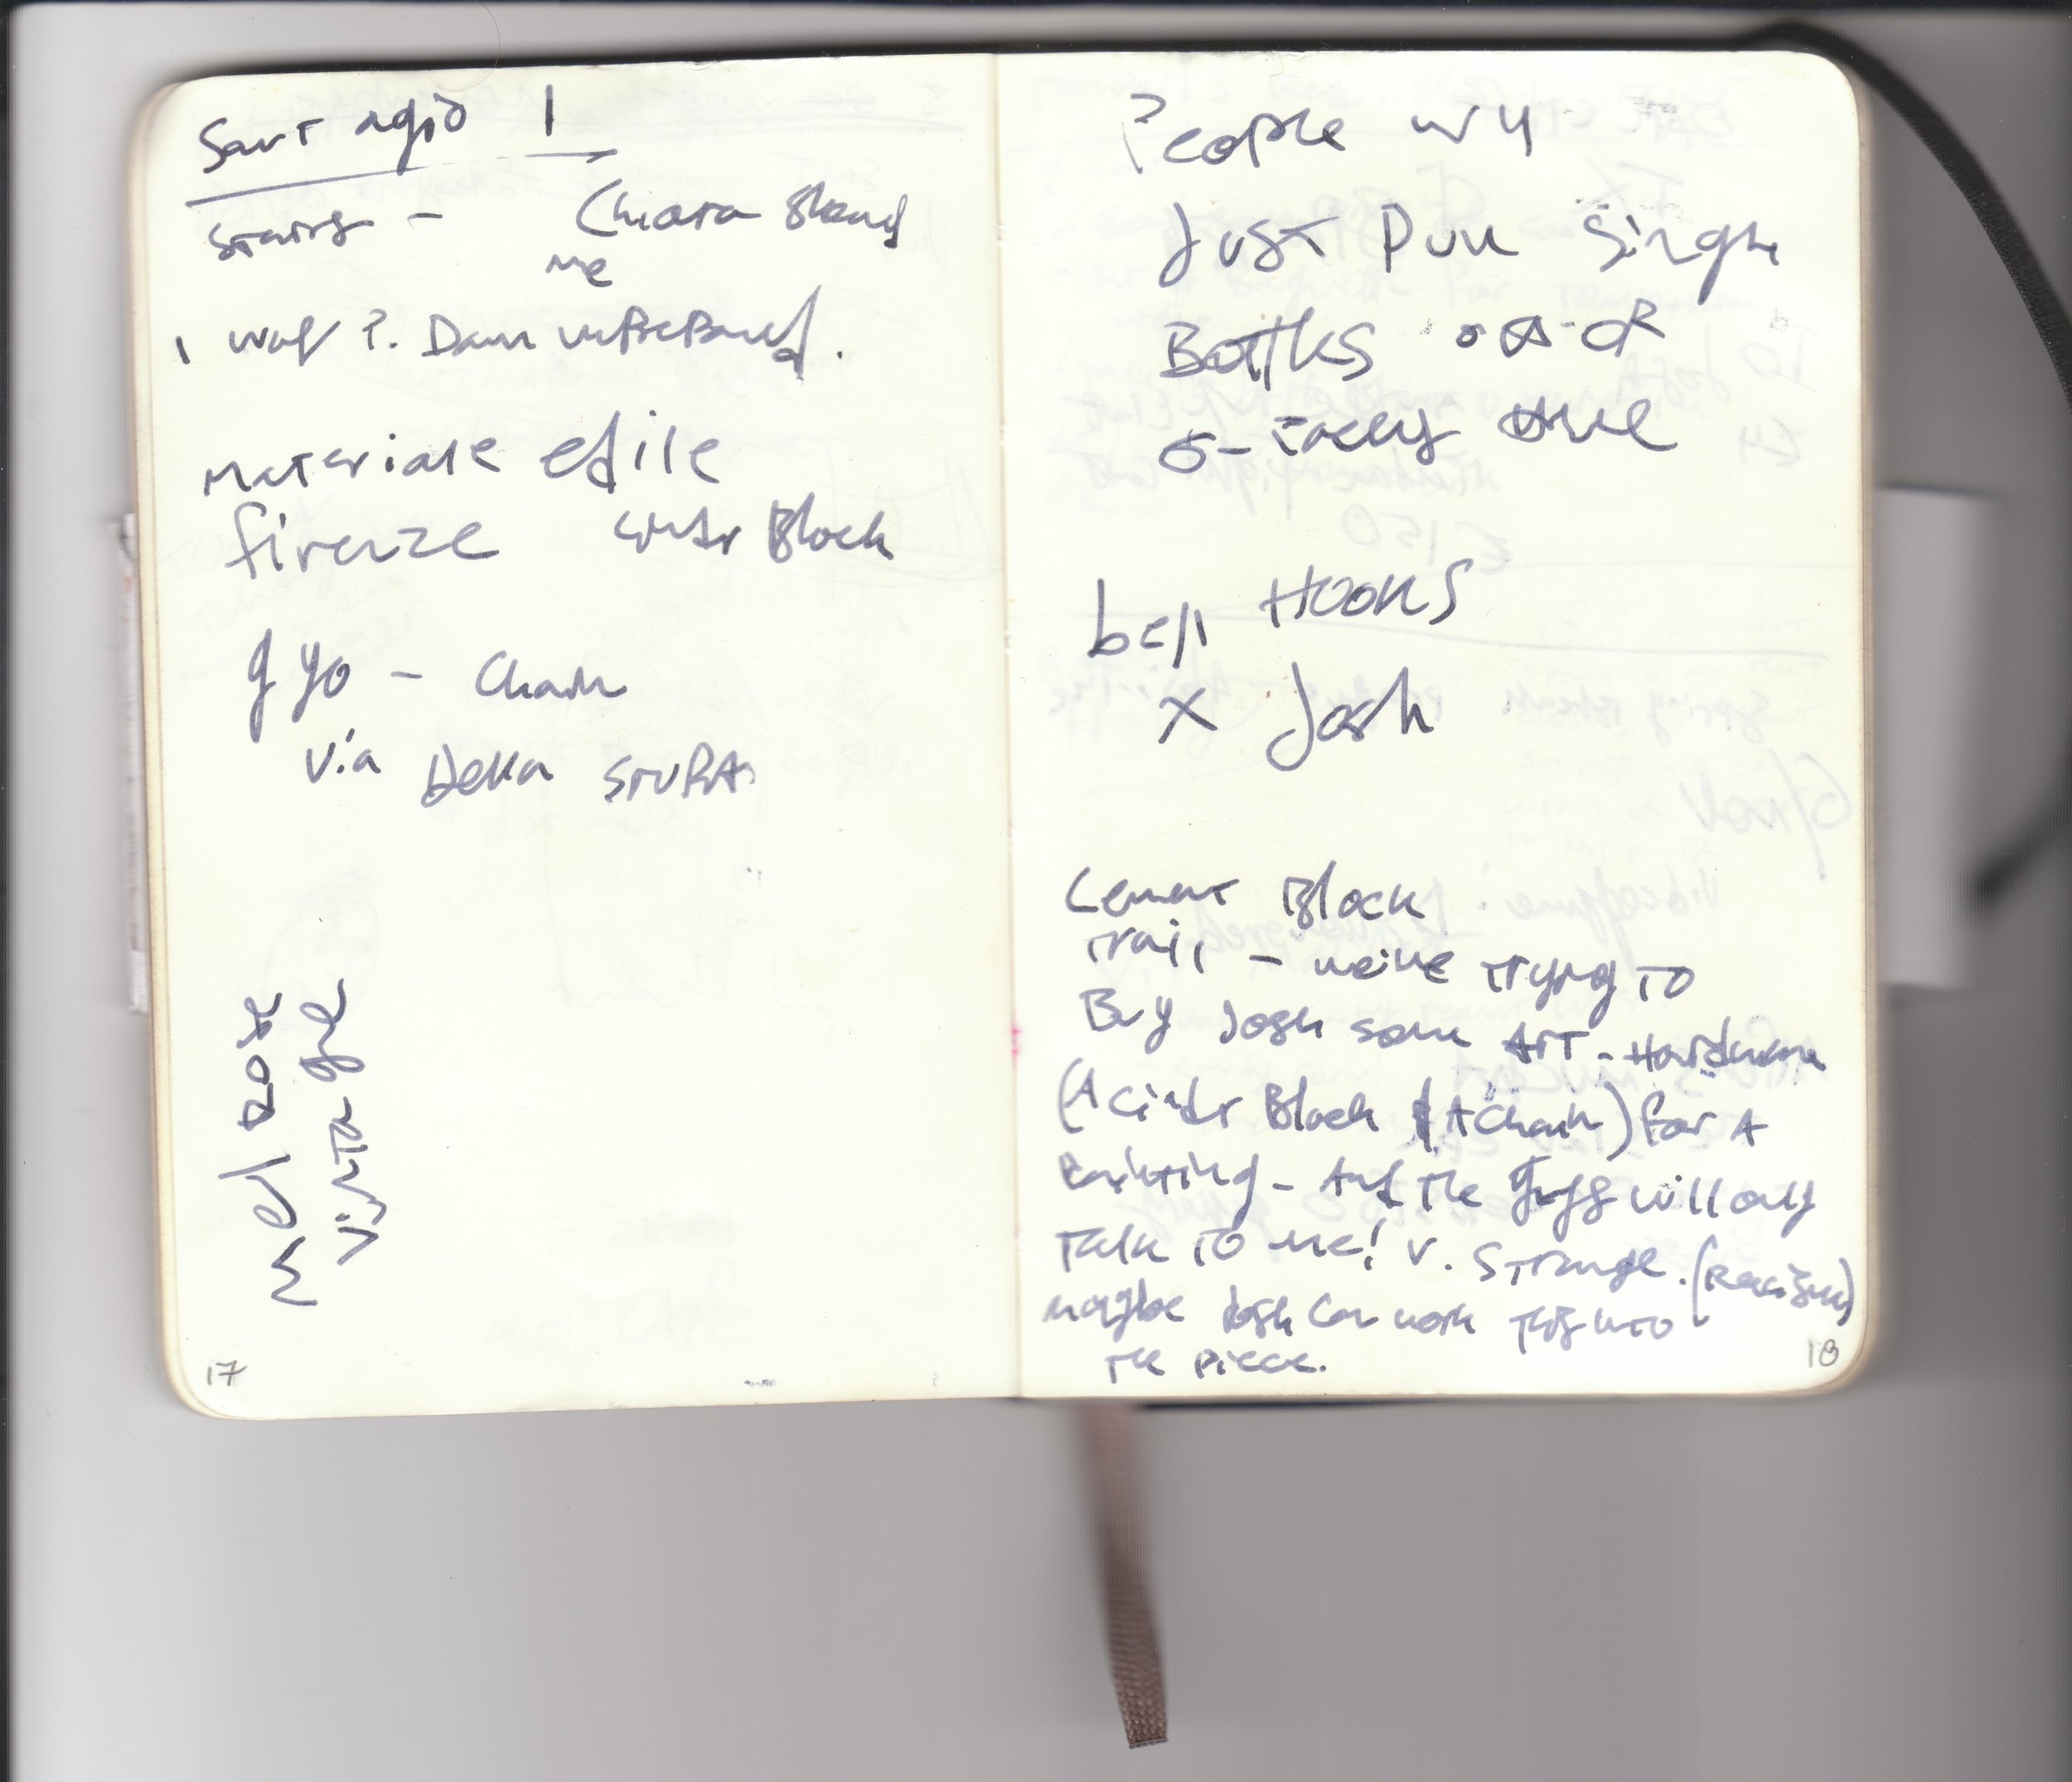 Sant agio 1
Stairs - Chiara
me
wolf ?. Dan
Materiale edile
firenze cinder Block
g yo - Chain
Via Della STUFA
Melrose
Vintage
17
People
Just Pull Single
Bottles
bell HOOKS
X Josh
Cement Block
trail - we're trying TO
Buy Josh some ART - Hardware
(A cinder Block & A chain) for A
Painting - And The guys will only
Talk TO me! V. Strange. (Racism)
maybe Josh can work this into
the piece.
18